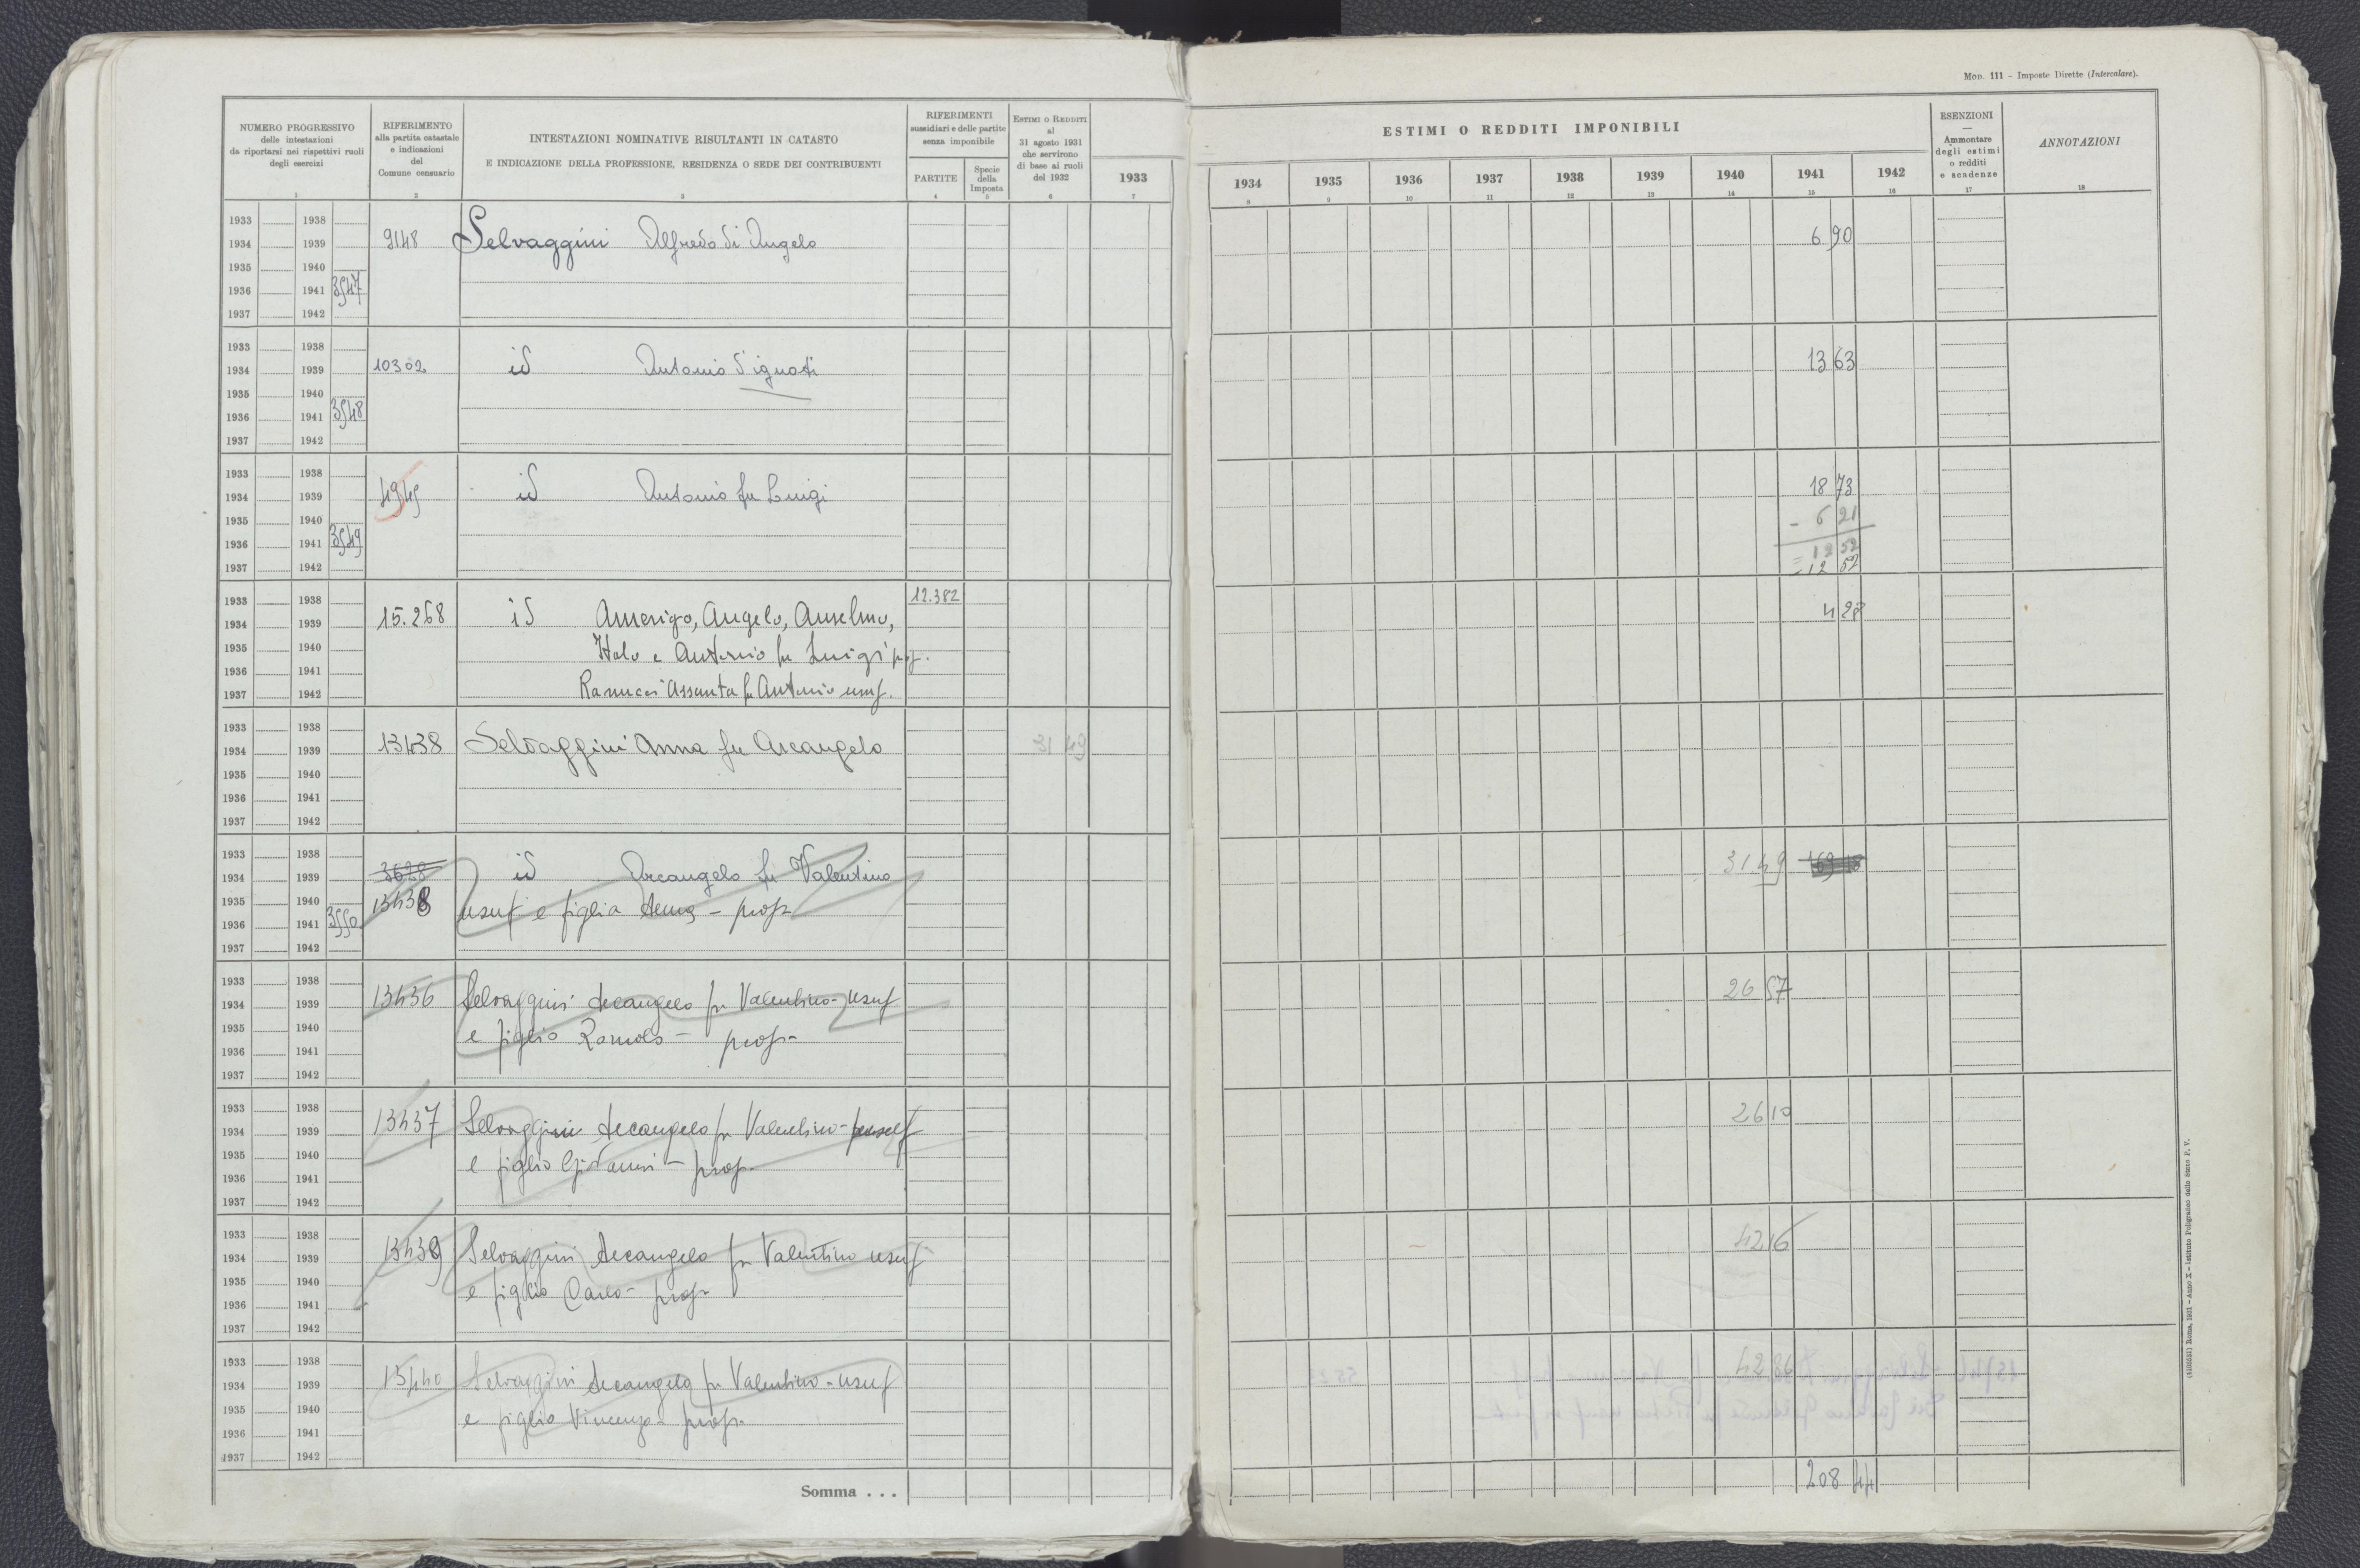 Mod. 111 – Imposte Dirette (Intercalare).
NUMERO PROGRESSIVO
delle intestazioni
da riportarsi nei rispettivi ruoli
degli esercizi
1
RIFERIMENTO
alla partita catastale
e indicazioni
del
Comune censuario
2
INTESTAZIONI NOMINATIVE RISULTANTI IN CATASTO
E INDICAZIONE DELLA PROFESSIONE, RESIDENZA O SEDE DEI CONTRIBUENTI
3
RIFERIMENTI
sussidiari e delle partite
senza imponibile
PARTITE
4
Specie
della
Imposta
5
ESTIMI O REDDITI
al
31 agosto 1931
che servirono
di base ai ruoli
del 1932
6
1933
7
ESTIMI O REDDITI IMPONIBILI
1934 1935 1936 1937 1938 1939 1940 1941 1942
8 9 10 11 12 13 14 15 16
ESENZIONI
—
Ammontare
degli estimi
o redditi
e scadenze
17
ANNOTAZIONI
18
1933 1938
1934 1939 9148 Selvaggini Alfredo di Angelo 6 90
1935 1940
1936 1941 3547
1937 1942
1933 1938
1934 1939 10302 id Antonio d'ignoti 13 63
1935 1940
1936 1941 3548
1937 1942
1933 1938
1934 1939 4945 id Antonio fu Luigi 18 73
1935 1940 - 6 21
1936 1941 3549 = 12 52
1937 1942 = 12 52
1933 1938 12.382
1934 1939 15.268 id Amerigo, Angelo, Anselmo, 4 28
1935 1940 Italo e Antonio fu Luigi prop.
1936 1941
1937 1942 Ranucci Assunta fu Antonio usuf.
1933 1938
1934 1939 13438 Selvaggini Anna fu Arcangelo 31 49
1935 1940
1936 1941
1937 1942
1933 1938
1934 1939 3628 id Arcangelo fu Valentino 31 49 169 18
1935 1940 13438 usuf e figlia Anna – prop
1936 1941 3550
1937 1942
1933 1938
1934 1939 13436 Selvaggini Arcangelo fu Valentino - usuf 26 57
1935 1940 e figlio Romolo – prop-
1936 1941
1937 1942
1933 1938
1934 1939 13437 Selvaggini Arcangelo fu Valentino - usuf 26 10
1935 1940
1936 1941 e figlio Giovanni – prop.
1937 1942
1933 1938
1934 1939 13439 Selvaggini Arcangelo fu Valentino usuf 42 16
1935 1940 e figlio Carlo - prop
1936 1941
1937 1942
1933 1938
1934 1939 13440 Selvaggini Arcangelo fu Valentino - usuf 42 86
1935 1940 e figlio Vincenzo - prop.
1936 1941
1937 1942
Somma . . . 208 44
Roma, 1931 – Anno X – Istituto Poligrafico dello Stato P. V.